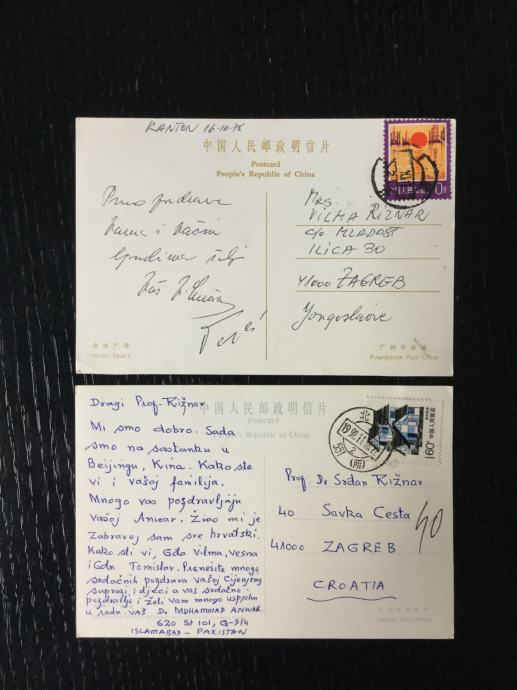 KANTON 16-10-78
中国人民邮政明信片
Postcard
People's Republic of China
Puno pozdrava
Vama i Vašim
ljudima šalje
Vaš
Mrs.
VILMA RIŽNAR
c/o MLADOST
ILICA 30
41000 ZAGREB
Yougoslavie
海珠广场
Haizhu Square
广州市邮局
Kwangchow Post Office
中国人民邮政明信片
People's Republic of China
Dragi Prof. Rižnar
Mi smo dobro. Sada
smo na sastanku u
Beijingu, Kina. Kako ste
vi i vašoj familija.
Mnogo vas pozdravljaju
vašoj Anwar. Žiao mi je
Zabravoj sam sre hrvatski.
Kako sli vi, Gđa Vilma, Vesna
i Gdn Tomislav. Prenešite mnogo
srdačnih pozdrava vašoj Cijenjenoj
supruzi i djeci a vas srdačno
pozdravlje i želi vam mnogo uspjehu
u radu. vaš Dr MUHAMMAD ANWAR
620 St 101, G-9/4
ISLAMABAD - PAKISTAN
北
551 (所)
160
中国人民邮政
Prof. Dr Srdan Rižnar
40 Savka Cesta
41000 ZAGREB
CROATIA
40